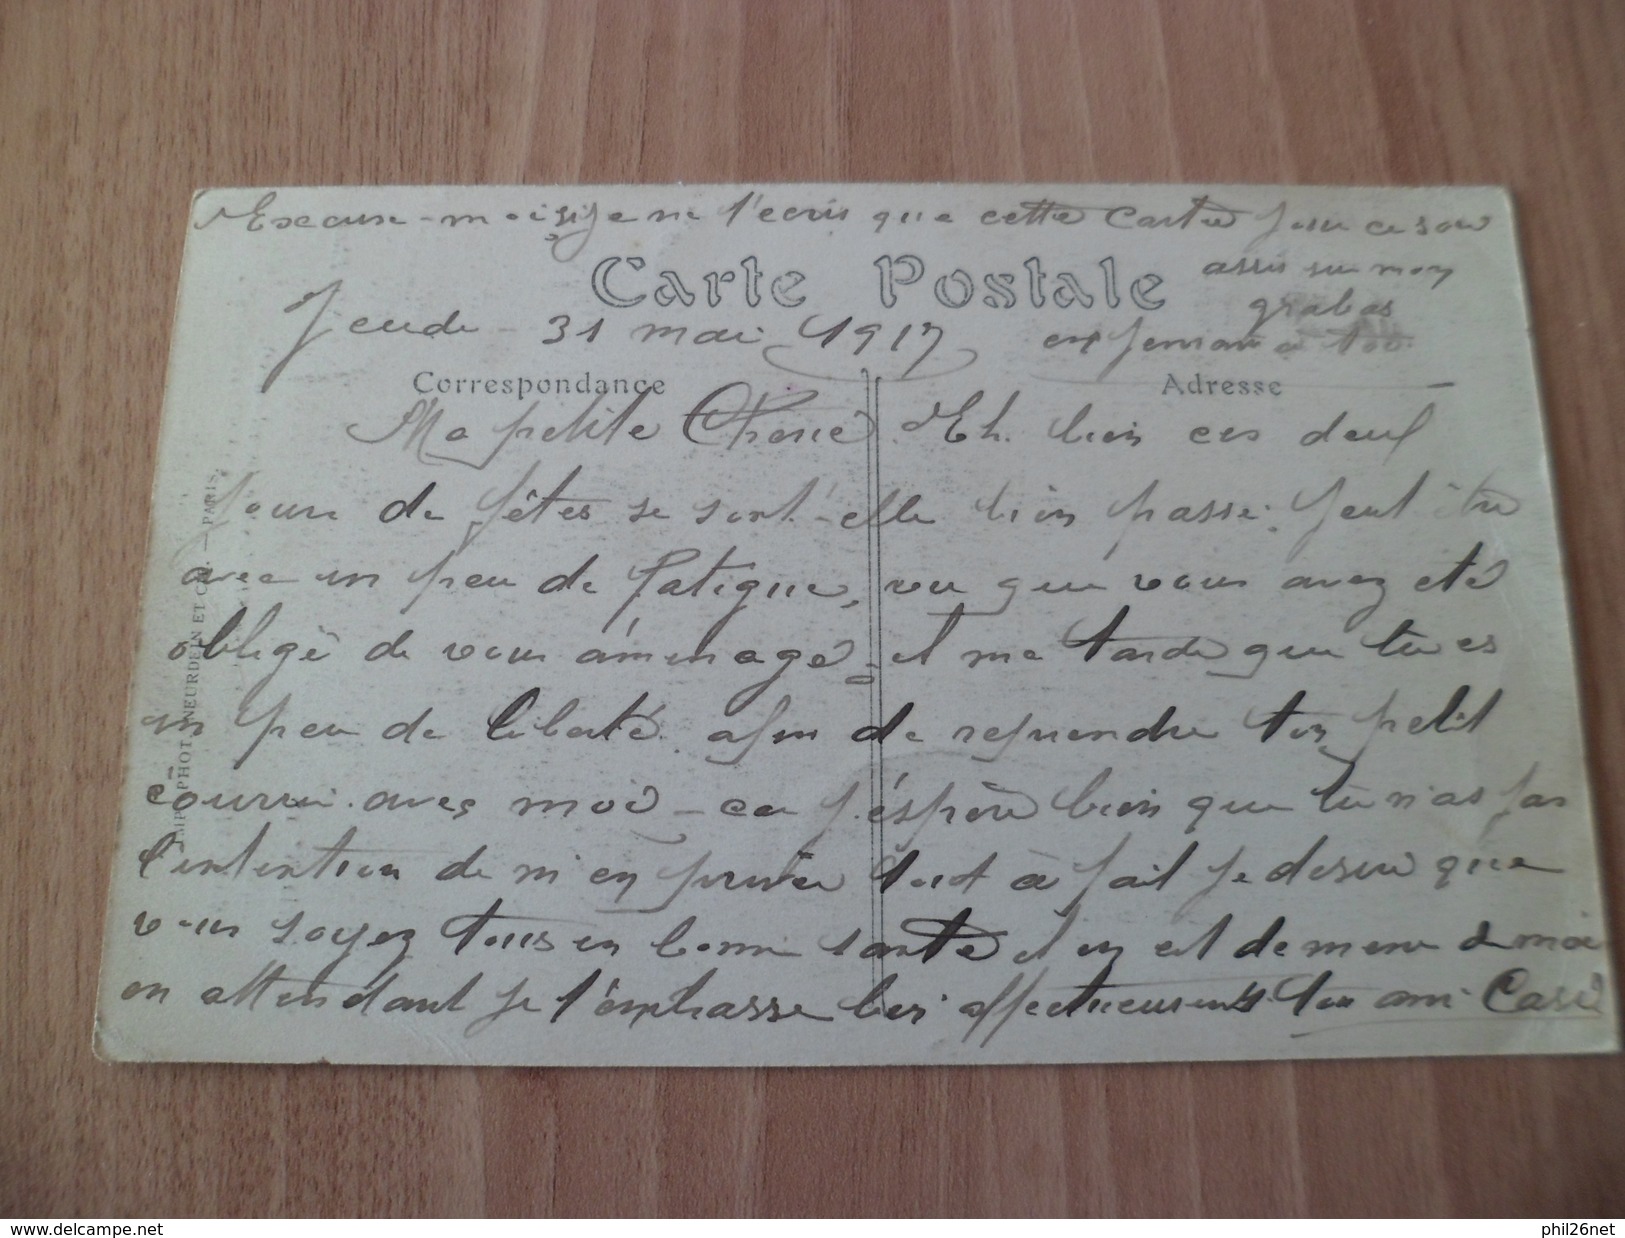 Excuse-moi si je ne t'ecris que cette carte je suis ce soir
assis sur mon
grabas
en pensant a toi
Carte Postale
Jeudi - 31 mai 1917
Correspondance
Adresse
Ma petite Cherie. Eh. bien ces deux
jours de fêtes se sont-elle bien passé. peut être
avec un peu de fatigue, vu que vous avez eté
obligé de vous aménagé - et me tarde que tu es
un peu de liberté. afin de reprendre ton petit
courrier. avec moi - car j'éspère bien que tu n'as pas
l'intention de m'en priver tout à fait je desire que
vous soyez tous en bonne santé et en est de meme de moi
en attendant je t'embrasse bien affectueusement ton ami
IMP. PHOT. NEURDEIN ET CIE. — PARIS.
http://www.delcampe.net
phil26net